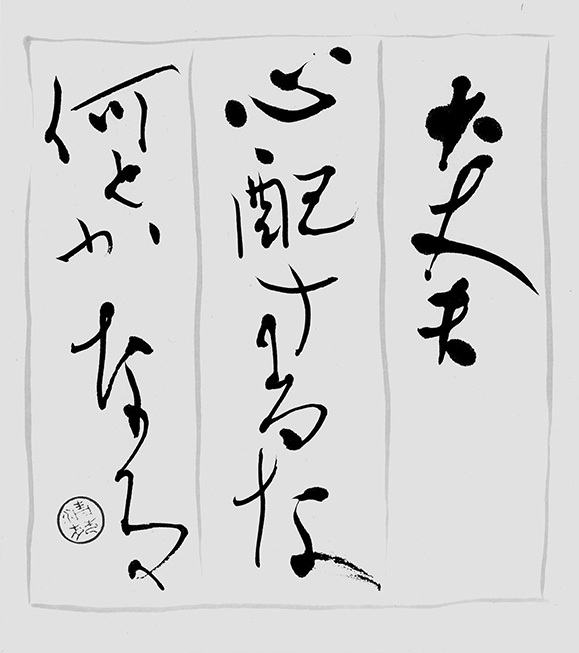 大丈夫
心配するな
何とかなる